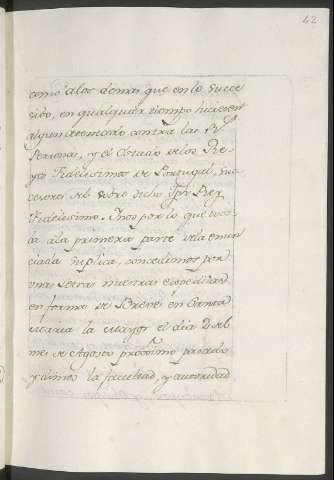 42
como a los demas que en lo succe
sido, en qualquier tiempo hiciesen
algun atentado contra las Rs
Personas, y el Estado de los Re-
yes Fidelisimos de Portugal, suc-
cesores del sobre dicho Sor Rey
Fidelisimo. Y nos por lo que toca
ba a la primera parte de la enun
ciada suplica, concedimos por
otras Letras nuestras expedidas
en forma de Breve en Santa
Maria la Mayor el dia
me de Agosto proximo pasado
y dimos la facultad, y autoridad